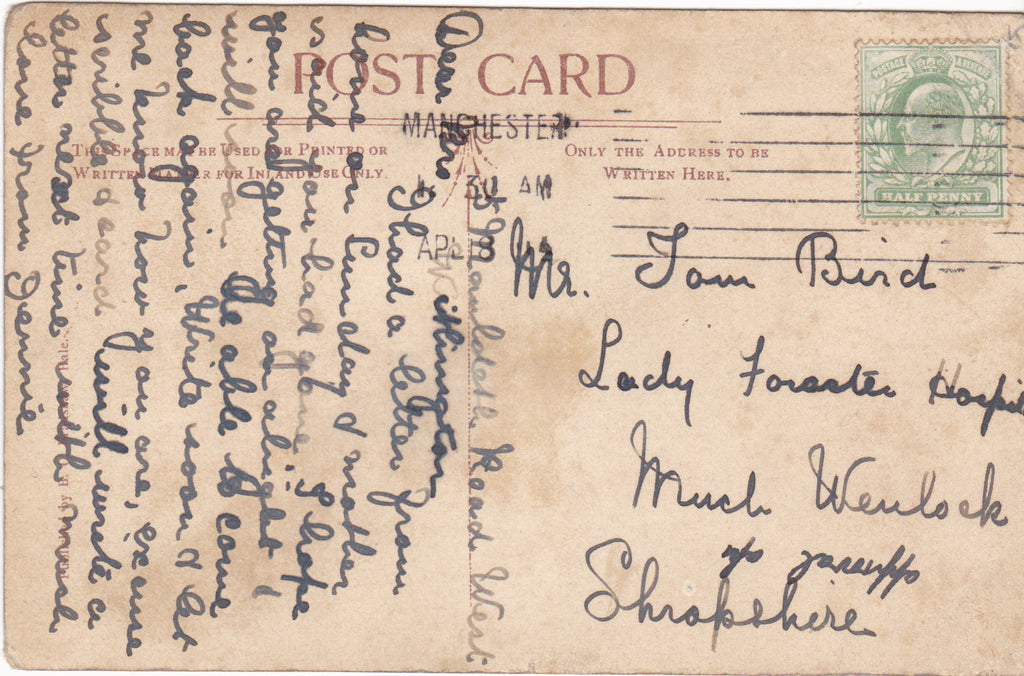 POST CARD
THIS SPACE MAY BE USED FOR PRINTED OR
WRITTEN MATTER FOR INLAND USE ONLY.
ONLY THE ADDRESS TO BE
WRITTEN HERE.
POSTAGE & REVENUE
HALF PENNY
MANCHESTER
30 AM
APL 8
Mauldeth Road West
Withington
Dear Bro I had a letter from
home on Sunday & mother
said you had gone I hope
you are getting on alright &
will soon be able to come
back again, Write soon & let
me know how you are, excuse
card will write a
letter next time with much
love from Jennie
Mr. Tom Bird
Lady Forester Hospit
Much Wenlock
Shropshire